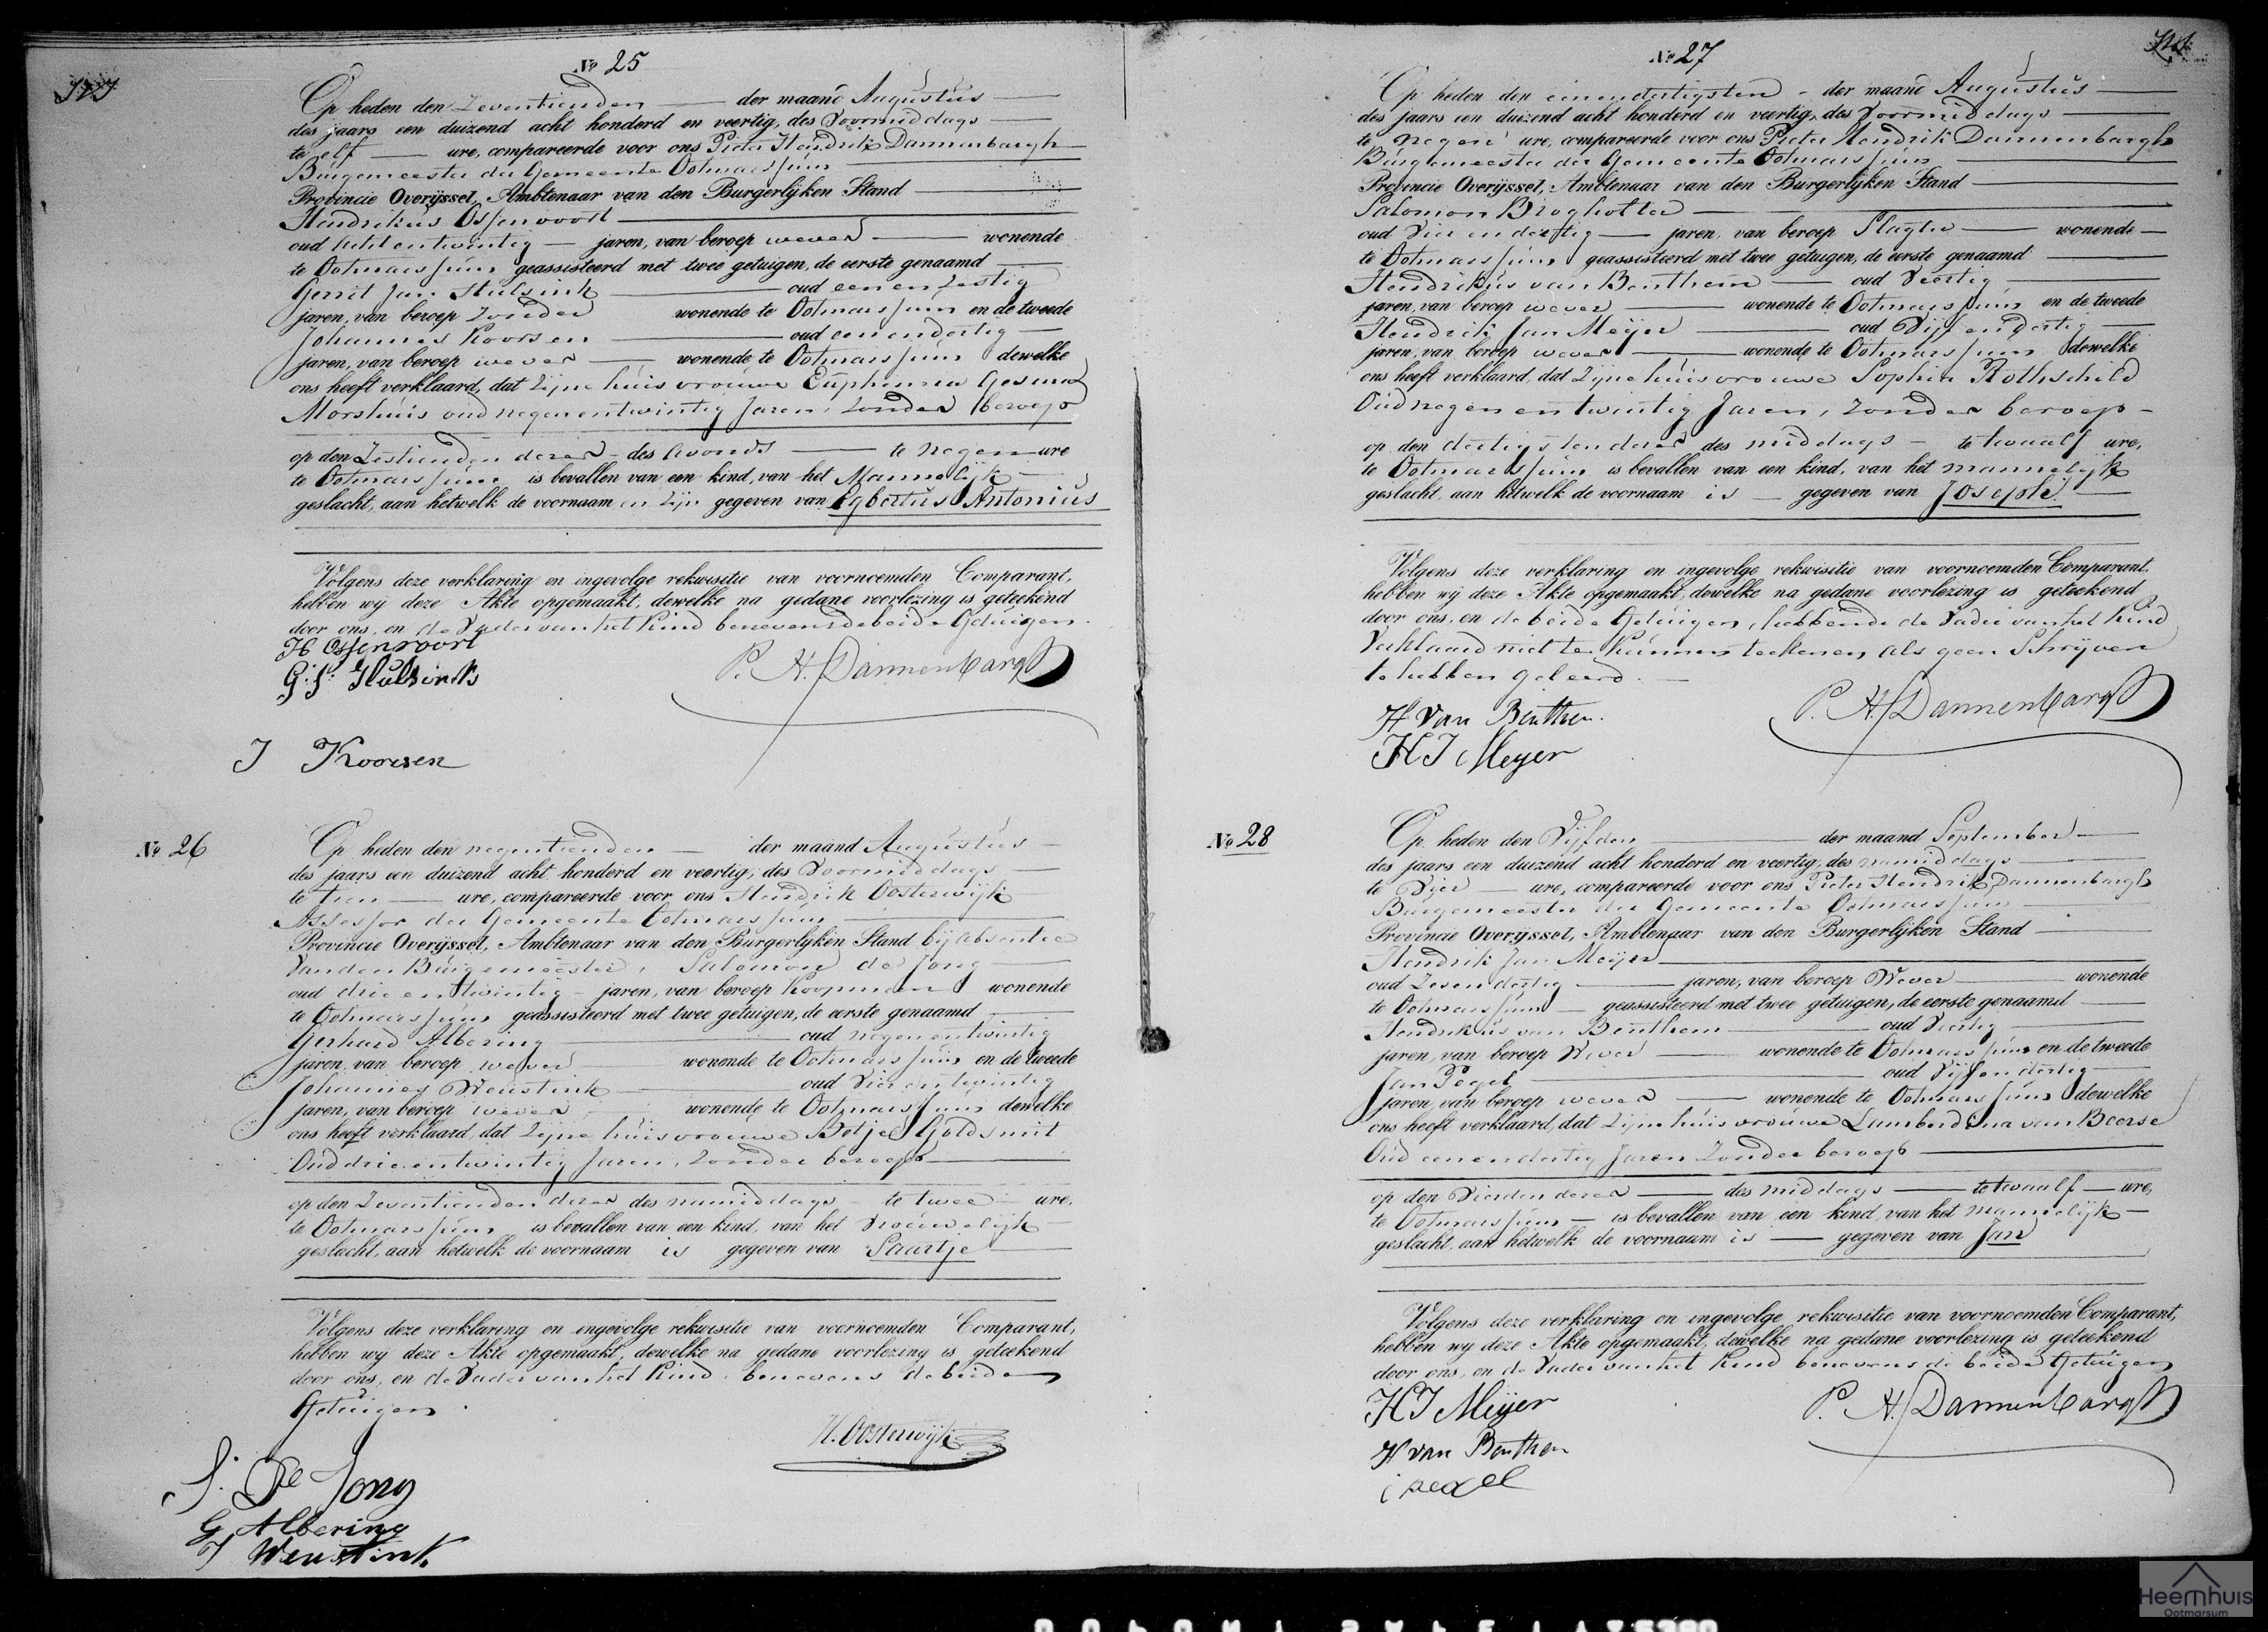 No 25
Op heden den Zeventienden der maand Augustus
des jaars een duizend acht honderd en veertig, des Voormiddags
te elf ure, compareerde voor ons Pieter Hendrik Dannenbargh
Burgemeester der Gemeente Ootmarssum
Provincie Overijssel, Ambtenaar van den Burgerlijken Stand
Hendrikus Ossenvoort
oud acht en twintig jaren, van beroep wever wonende
te Ootmarssum geassisteerd met twee getuigen, de eerste genaamd
Gerrit Jan Hulsink oud een en Zestig
jaren, van beroep Zonder wonende te Ootmarssum en de tweede
Johannes Koorsen oud een en dertig
jaren, van beroep wever wonende te Ootmarssum dewelke
ons heeft verklaard, dat Zijne huisvrouwe Euphemia Gesina
Morshuis oud negen en twintig Jaren, Zonder beroep
op den Zestienden dezer des avonds te negen ure
te Ootmarssum is bevallen van een kind, van het Mannelijk
geslacht, aan hetwelk de voornaam en zijn gegeven van Egbertus Antonius
Volgens deze verklaring en ingevolge rekwisitie van voornoemden Comparant,
hebben wij deze Akte opgemaakt, dewelke na gedane voorlezing is geteekend
door ons, en de Vader van het Kind benevens de beide Getuigen.
H Ossenvoort
G. J. Hulsink
P. H. Dannenbargh
J Koorsen
No 26
Op heden den negentienden der maand Augustus
des jaars een duizend acht honderd en veertig, des Voormiddags
te tien ure, compareerde voor ons Hendrik Oosterwijk
Assessor der Gemeente Ootmarssum
Provincie Overijssel, Ambtenaar van den Burgerlijken Stand bij absentie
van den Burgemeester, Salomon de Jong
oud drie en twintig jaren, van beroep Koopman wonende
te Ootmarssum geassisteerd met twee getuigen, de eerste genaamd
Gerhard Albering oud negen en twintig
jaren, van beroep wever wonende te Ootmarssum en de tweede
Johannes Weustink oud Vier en twintig
jaren, van beroep wever wonende te Ootmarssum dewelke
ons heeft verklaard, dat Zijne huisvrouwe Betje Goldsmit
Oud drie en twintig Jaren, Zonder beroep
op den Zeventienden dezer des namiddags te twee ure,
te Ootmarssum is bevallen van een kind, van het Vrouwelijk
geslacht, aan hetwelk de voornaam is gegeven van Saartje
Volgens deze verklaring en ingevolge rekwisitie van voornoemden Comparant,
hebben wij deze Akte opgemaakt, dewelke na gedane voorlezing is geteekend
door ons, en de Vader van het Kind, benevens de beide
Getuigen.
H. Oosterwijk
S. De Jong
G Albering
J Weustink
No 27
Op heden den eenendertigsten der maand Augustus
des jaars een duizend acht honderd en veertig, des Voormiddags
te negen ure, compareerde voor ons Pieter Hendrik Dannenbargh
Burgemeester der Gemeente Ootmarssum
Provincie Overijssel, Ambtenaar van den Burgerlijken Stand
Salomon
oud Vier en dertig jaren, van beroep Slagter wonende
te Ootmarssum geassisteerd met twee getuigen, de eerste genaamd
Hendrikus van Benthem oud Veertig
jaren, van beroep wever wonende te Ootmarssum en de tweede
Hendrik Jan Meijer oud Vijf en dertig
jaren, van beroep wever wonende te Ootmarssum dewelke
ons heeft verklaard, dat Zijne huisvrouwe Sophia Rothschild
Oud negen en twintig Jaren, Zonder beroep
op den dertigsten dezer des middags te twaalf ure,
te Ootmarssum is bevallen van een kind, van het mannelijk
geslacht, aan hetwelk de voornaam is gegeven van Joseph
Volgens deze verklaring en ingevolge rekwisitie van voornoemden Comparant,
hebben wij deze Akte opgemaakt, dewelke na gedane voorlezing is geteekend
door ons, en de beide Getuigen, hebbende de Vader van het Kind
Verklaard niet te Kunnen teekenen, als geen Schrijven
te hebben geleerd.
P. H. Dannenbargh
H Van Benthem.
H J Meyer
No 28
Op heden den Vijfden der maand September
des jaars een duizend acht honderd en veertig, des namiddags
te Vier ure, compareerde voor ons Pieter Hendrik Dannenbargh
Burgemeester der Gemeente Ootmarssum
Provincie Overijssel, Ambtenaar van den Burgerlijken Stand
Hendrik Jan Meijer
oud Zesendertig jaren, van beroep Wever wonende
te Ootmarssum geassisteerd met twee getuigen, de eerste genaamd
Hendrikus van Benthem oud Veertig
jaren, van beroep Wever wonende te Ootmarssum en de tweede
Jan Pegel oud Vijf en dertig
jaren, van beroep wever wonende te Ootmarssum dewelke
ons heeft verklaard, dat Zijne huisvrouwe Lamberdina van Beerse
Oud een en dertig Jaren Zonder beroep
op den Vierden dezer des middags te twaalf ure,
te Ootmarssum is bevallen van een kind, van het mannelijk
geslacht, aan hetwelk de voornaam is gegeven van Jan
Volgens deze verklaring en ingevolge rekwisitie van voornoemden Comparant,
hebben wij deze Akte opgemaakt, dewelke na gedane voorlezing is geteekend
door ons, en de Vader van het Kind benevens de beide Getuigen
H J Meijer
P. H. Dannenbargh
H van Benthem
Heemhuis
Ootmarsum